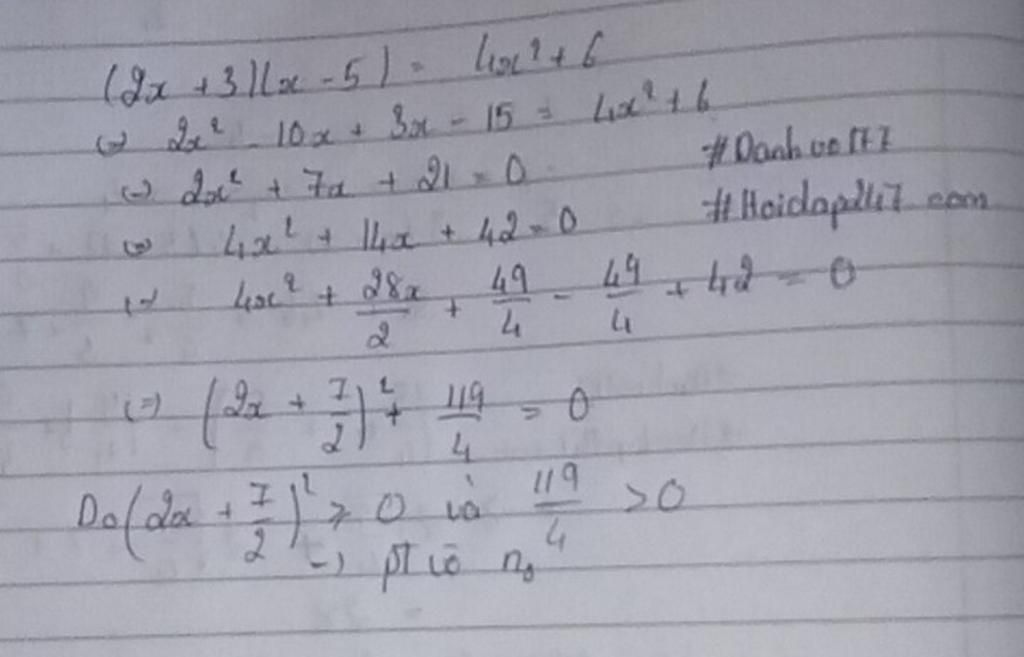 (2x + 3)(x - 5) = 4x² + 6
(=) 2x² - 10x + 3x - 15 = 4x² + 6
(=) 2x² + 7x + 21 = 0
#Danhvo177
(=) 4x² + 14x + 42 = 0
#Hoidap247.com
(=) 4x² + 28x/2 + 49/4 - 49/4 + 42 = 0
(=) (2x + 7/2)² + 119/4 = 0
Do (2x + 7/2)² ≥ 0 và 119/4 > 0
=) pt vô n₀